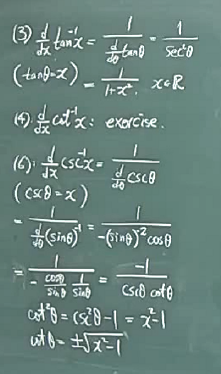 (3) d/dx tan⁻¹x = 1/(d/dθ tanθ) = 1/sec²θ
(tanθ=x) = 1/(1+x²), x∈R
(4). d/dx cot⁻¹x : exercise.
(6): d/dx csc⁻¹x = 1/(d/dθ cscθ)
(cscθ = x)
= 1/(d/dθ (sinθ)⁻¹) = 1/(-(sinθ)⁻²cosθ)
= 1/(-cosθ/sinθ 1/sinθ) = -1/(cscθ cotθ)
cot²θ = csc²θ-1 = x²-1
cotθ = ±√(x²-1)